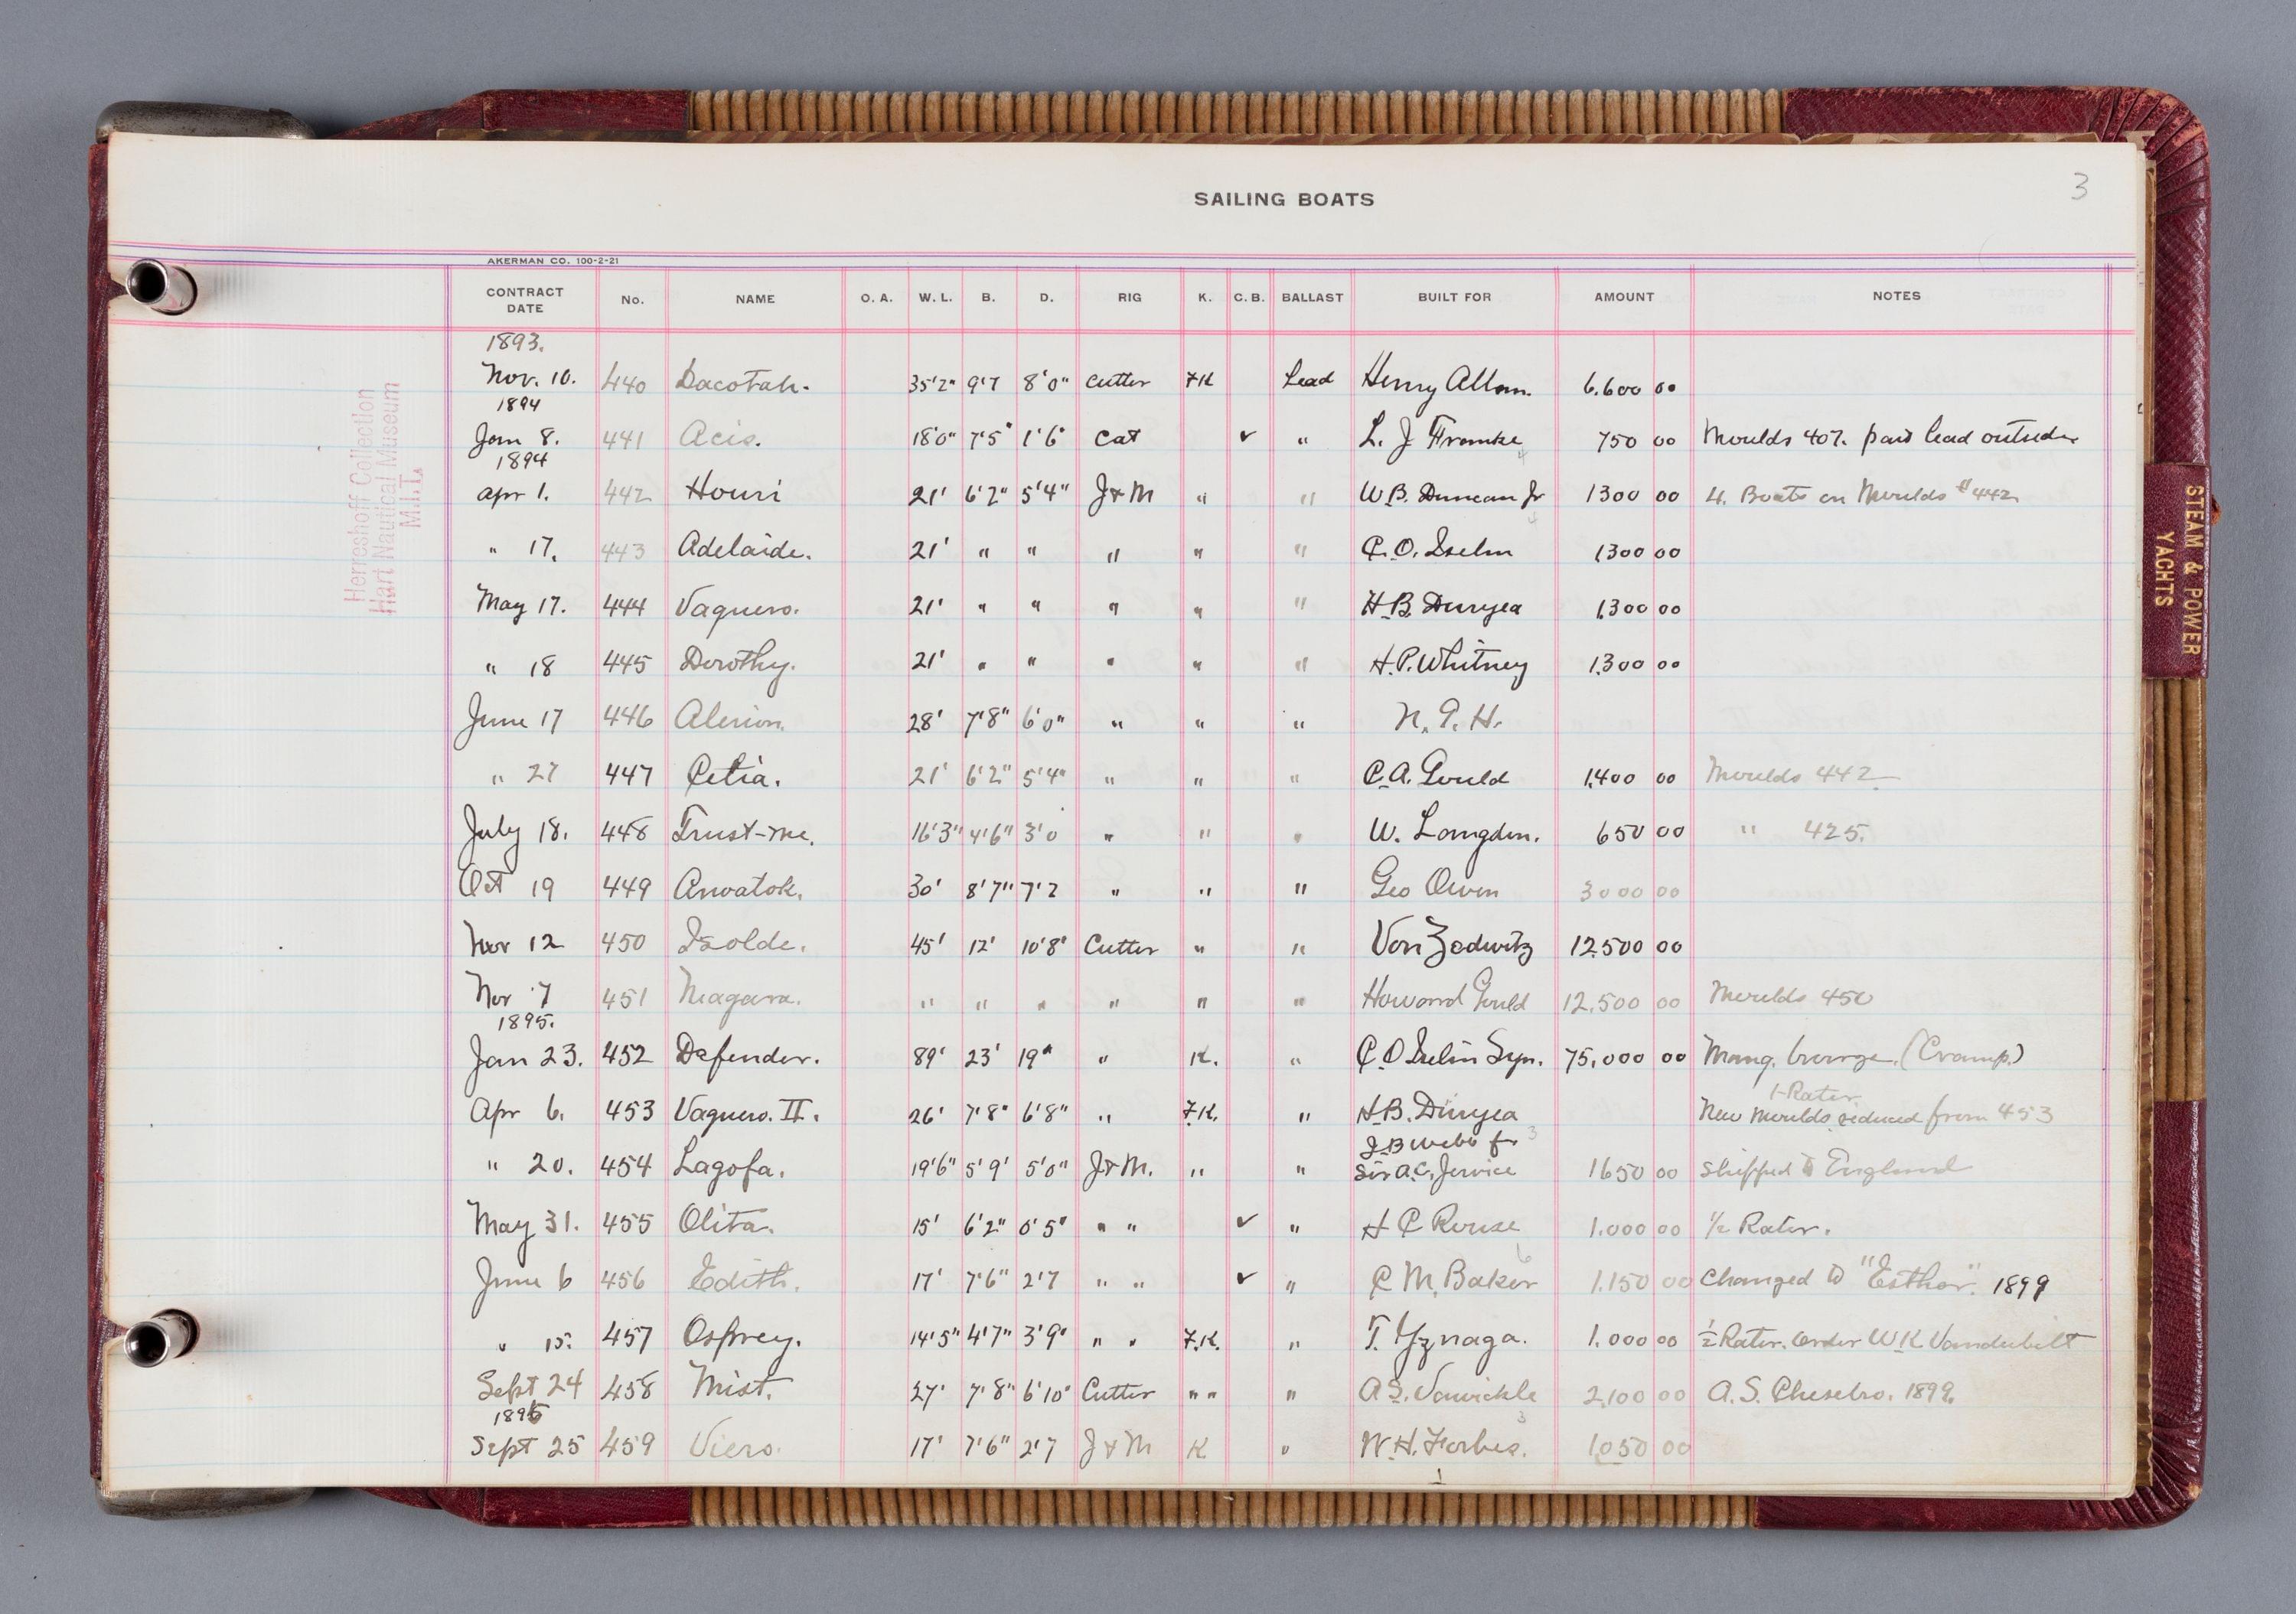 3
SAILING BOATS
AKERMAN CO. 100-2-21
CONTRACT DATE No. NAME O. A. W. L. B. D. RIG K. C. B. BALLAST BUILT FOR AMOUNT NOTES
1893.
Nov. 10. 440 Dacotah. 35'2" 9'7 8'0" Cutter FK Lead Henry Allan. 6.600 00
1894
Jan 8. 441 Acis. 18'0" 7'5" 1'6" Cat ✓ " L. J Francke 750 00 Moulds 407. part lead outside
1894
Apr 1. 442 Houri 21' 6'2" 5'4" J & M " " W.B. Duncan Jr 1300 00 4. Boats on Moulds #442
" 17. 443 Adelaide. 21' " " " " " C.O. Iselin 1300 00
May 17. 444 Vaquero. 21' " " " " " H.B. Duryea 1300 00
" 18 445 Dorothy. 21' " " " " " H.P. Whitney 1300 00
June 17 446 Alerion. 28' 7'8" 6'0" " " " N. G. H.
" 27 447 Celia. 21' 6'2" 5'4" " " " C.A. Gould 1400 00 Moulds 442
July 18. 448 Trust-me. 16'3" 4'6" 3'0 " " " W. Langdon. 650 00 " 425.
Oct 19 449 Anwatok. 30' 8'7" 7'2 " " " Geo Owen 3000 00
Nov 12 450 Isolde. 45' 12' 10'8" Cutter " " Von Zedwitz 12.500 00
Nov 7 451 Niagara. " " " " " " Howard Gould 12,500 00 Moulds 450
1895.
Jan 23. 452 Defender. 89' 23' 19" " K. " C.O Iselin Syn. 75,000 00 Mang. bronze. (Cramp.)
1-Rater
Apr 6. 453 Vaquero. II. 26' 7'8" 6'8" " F.K. " H.B. Duryea New Moulds reduced from 453
J.B Webb for 3
" 20. 454 Lagofa. 19'6" 5'9' 5'0" J & M. " " Sir A.C. Jervice 1650 00 Shipped to England
May 31. 455 Olita. 15' 6'2" 0'5" " " ✓ " H C Rouse 1.000 00 1/2 Rater.
June 6 456 Edith. 17' 7'6" 2'7 " " ✓ " C M. Baker 1.150 00 Changed to "Esther". 1899
" 15. 457 Osprey. 14'5" 4'7" 3'9" " " F.K. " T. Yznaga. 1.000 00 1/2 Rater. Order W K Vanderbilt
Sept 24 458 Mist. 27' 7'8" 6'10" Cutter " " " A S. Vanwickle 2,100 00 A.S. Chesebro. 1899
1895
Sept 25 459 Viero. 17' 7'6" 2'7 J & M K " W.H. Forbes. 1050 00
Herreshoff Collection
Hart Nautical Museum
M.I.T.
STEAM & POWER
YACHTS